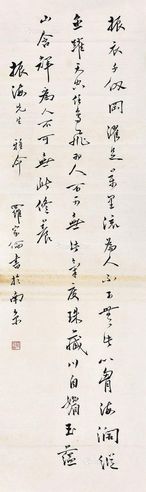 振衣千仞岡濯足萬里流為人不可無此心胸海濶縱
魚躍天空任鳥飛為人不可無此氣度珠藏川自媚玉蘊
山含輝為人不可無此修養
振海先生 雅命
羅家倫書於南京